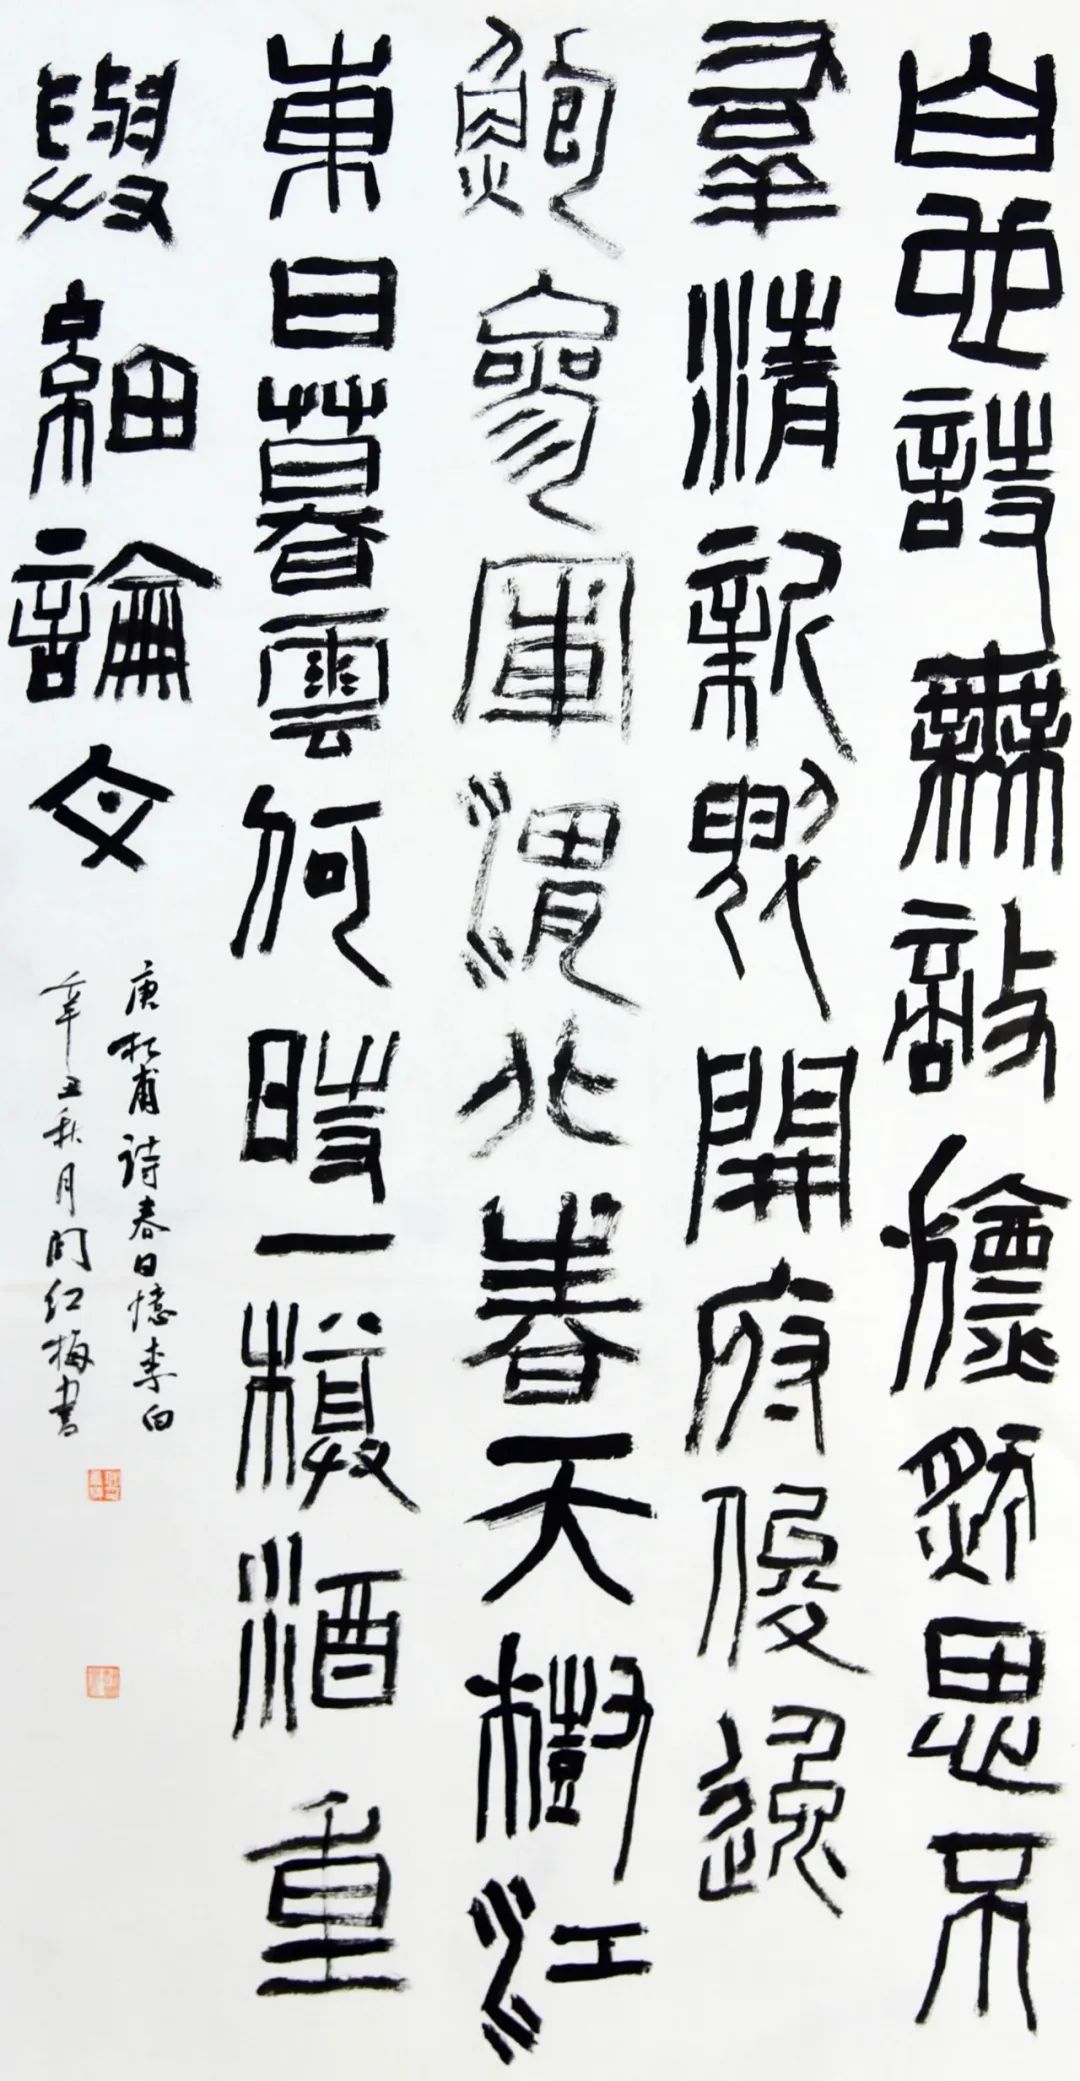 白也詩無敵飄然思不
羣清新庾開府俊逸
鮑參軍渭北春天樹江
東日暮雲何時一樽酒重
與細論文
唐杜甫詩春日憶李白
辛丑秋月闫红梅書